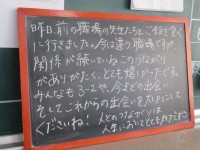 昨日、前の職場の先生たちとご飯を食べ
に行きました。今は違う職場ですが
関係が続いているこのつながり
がありがたく、とても嬉しかったです。
みんなも3-2や、今までの出会い
そしてこれからの出会いを大切にして
くださいね! 人とのつながりは
人生においてとても